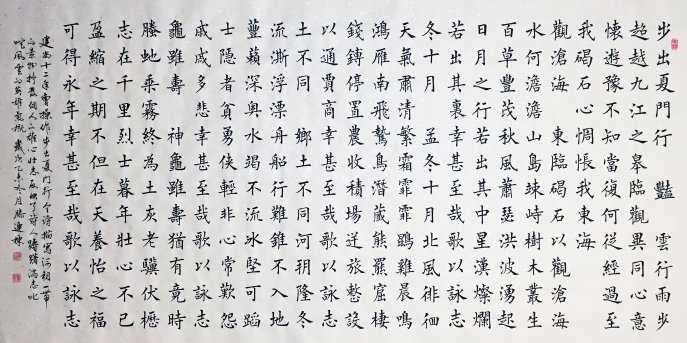 步出夏門行 豔 雲行雨步
超越九江之皋臨觀異同心意
懷遊豫不知當復何從經過至
我碣石心惆悵我東海
觀滄海 東臨碣石以觀滄海
水何澹澹山島竦峙樹木叢生
百草豐茂秋風蕭瑟洪波湧起
日月之行若出其中星漢燦爛
若出其裏幸甚至哉歌以詠志
冬十月 孟冬十月北風徘徊
天氣肅清繁霜霏霏鵾雞晨鳴
鴻雁南飛鷙鳥潛藏熊羆窟棲
錢鎛停置農收積場逆旅整設
以通賈商幸甚至哉歌以詠志
土不同 鄉土不同河朔隆冬
流澌浮漂舟船行難錐不入地
蘴藾深奧水竭不流冰堅可蹈
士隱者貧勇俠輕非心常歎怨
戚戚多悲幸甚至哉歌以詠志
龜雖壽 神龜雖壽猶有竟時
騰虵乘霧終為土灰老驥伏櫪
志在千里烈士暮年壯心不已
盈縮之期不但在天養怡之福
可得永年幸甚至哉歌以詠志
建安十二年曹操作步出夏門行詩描寫河朔一帶
的景物抒發個人的雄心壯志反映了詩人躊躇滿志叱
咤風雲的英雄氣概 歲次乙未冬月